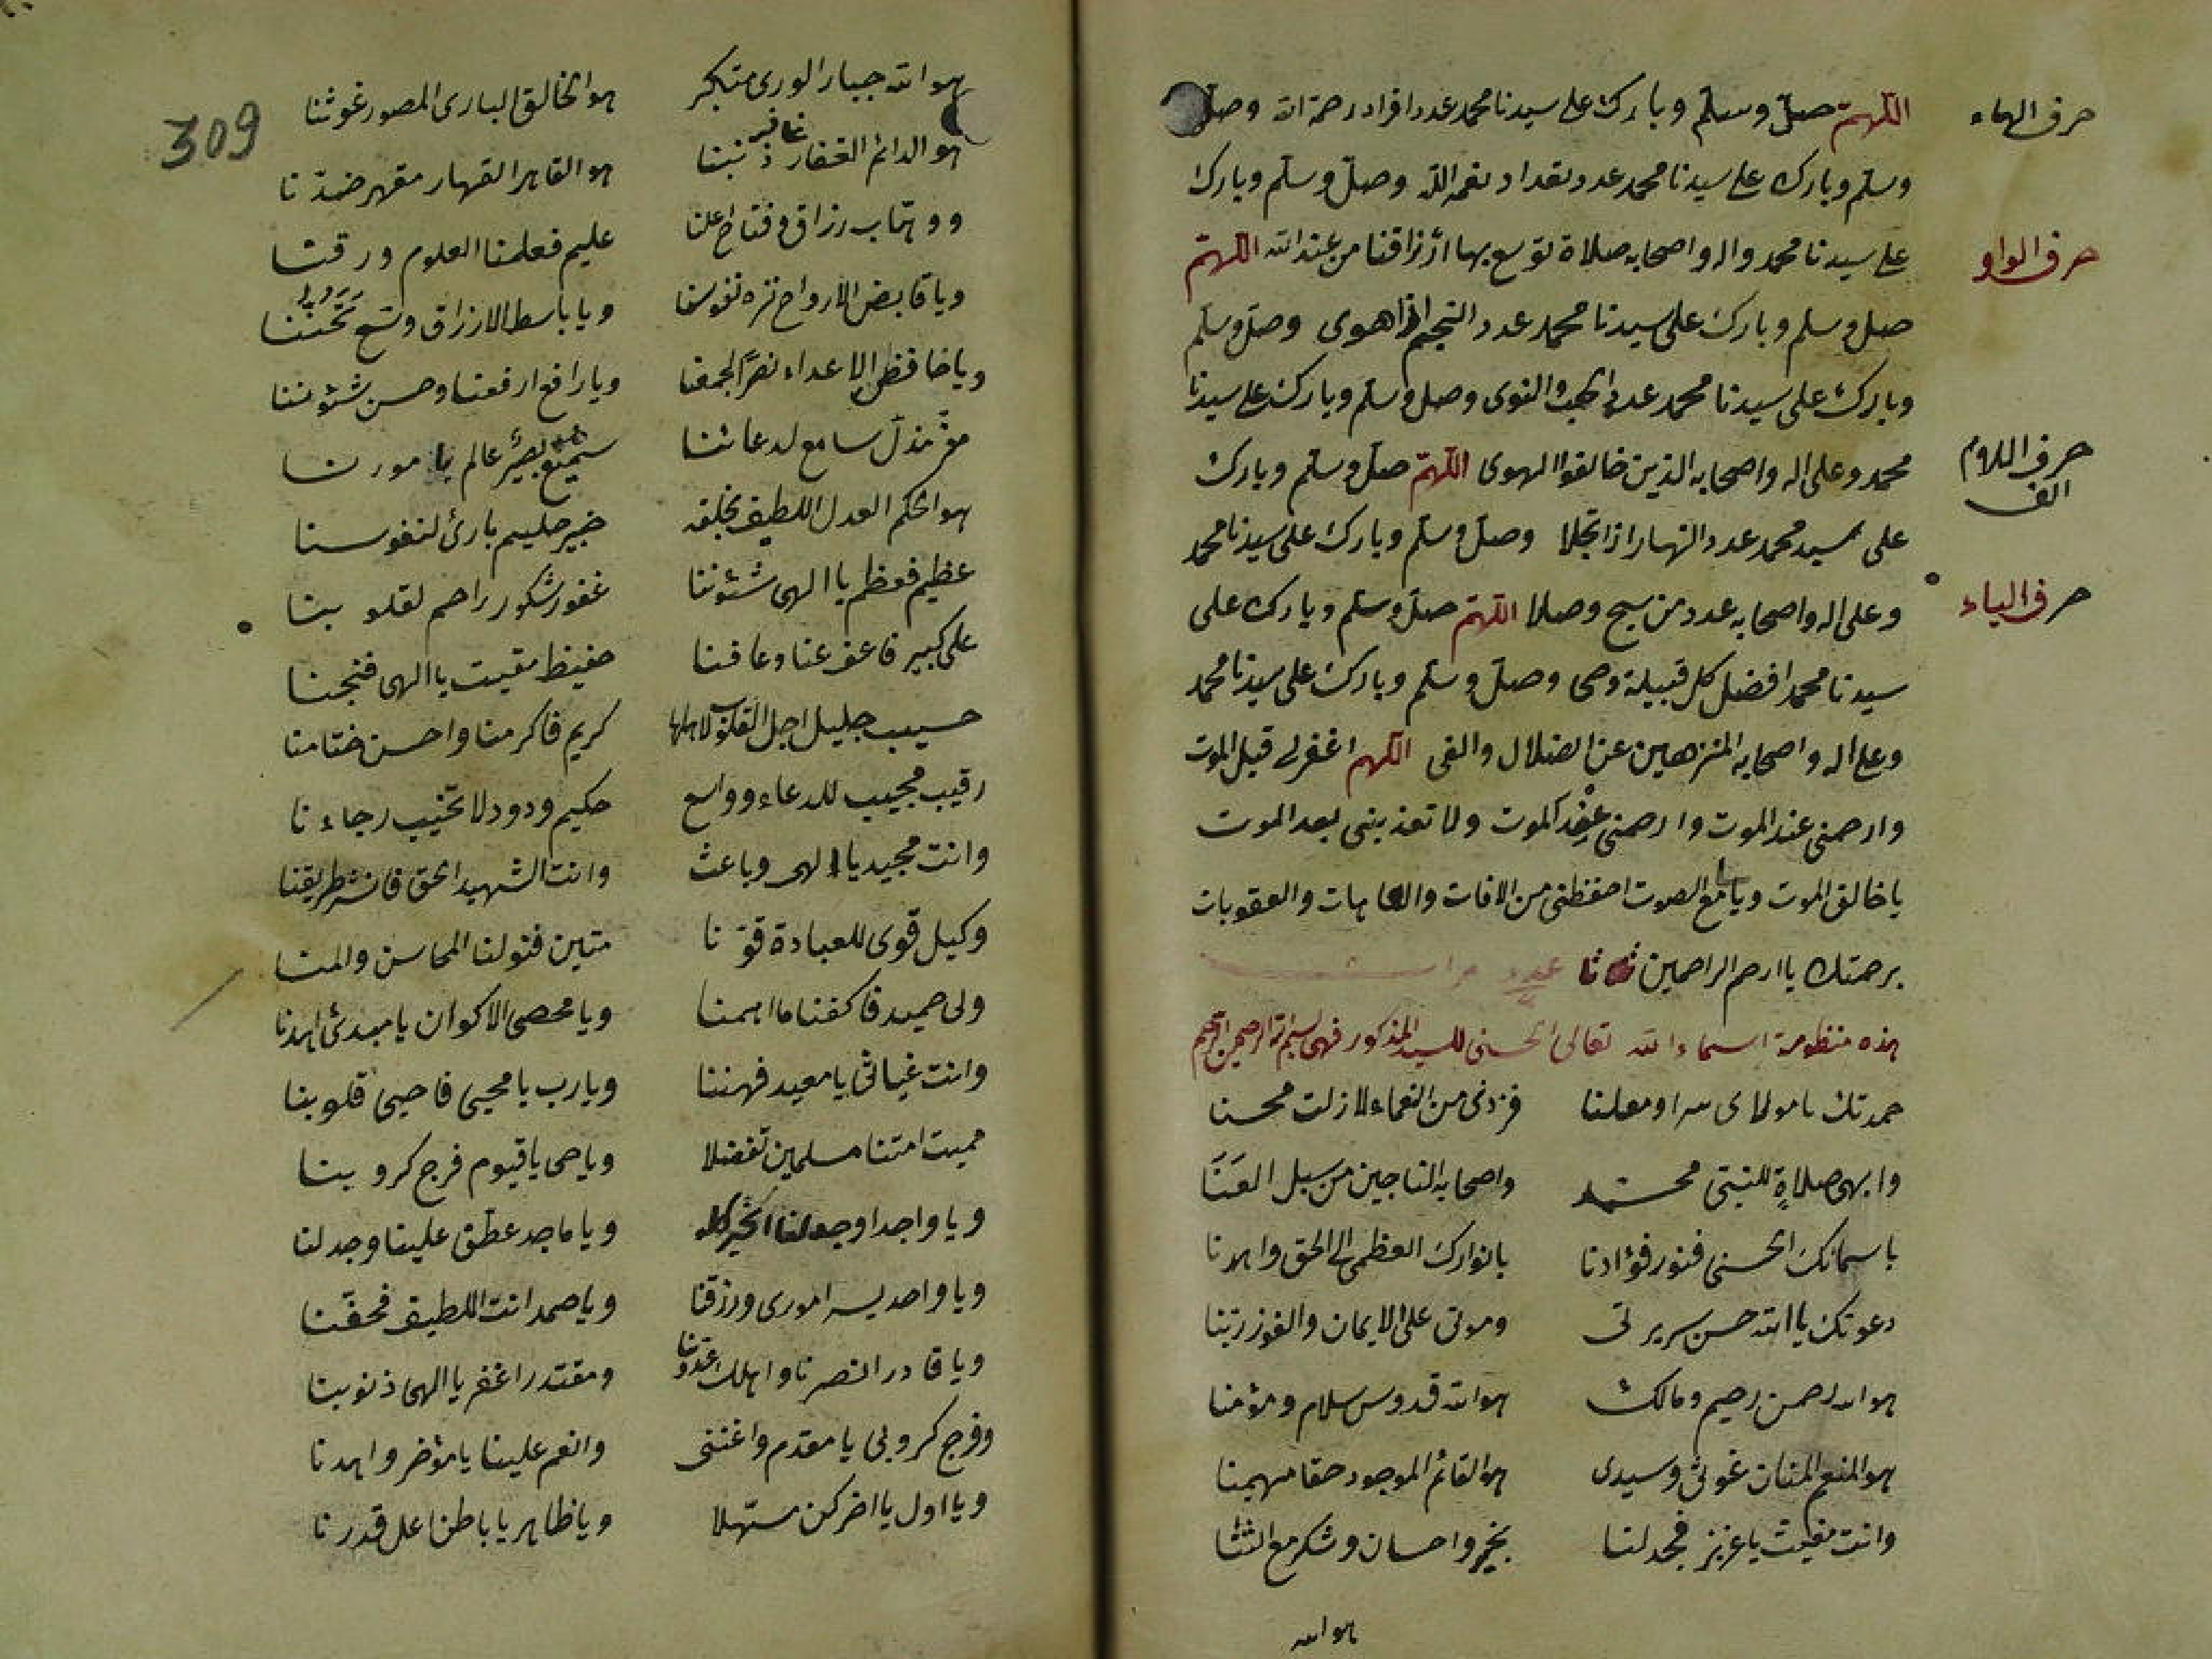 حرف الهاء
اللهم صل وسلم وبارك على سيدنا محمد عدد افراد رحمة الله وصل
وسلم وبارك على سيدنا محمد عدد تعداد نعم الله وصل وسلم وبارك
حرف الواو
على سيدنا محمد واله واصحابه صلاة توسع بها ارزاقنا من عند الله اللهم
صل وسلم وبارك على سيدنا محمد عدد النجم اذا هوى وصل وسلم
وبارك على سيدنا محمد عدد الحب والنوى وصل وسلم وبارك على سيدنا
حرف اللام الف
محمد وعلى اله واصحابه الذين خالفوا الهوى اللهم صل وسلم وبارك
على سيد محمد عدد النهار اذا تجلا وصل وسلم وبارك على سيدنا محمد
حرف الياء
وعلى اله واصحابه عدد من سبح وصلا اللهم صل وسلم وبارك على
سيدنا محمد افضل كل قبيلة وحى وصل وسلم وبارك على سيدنا محمد
وعلى اله واصحابه المنزهين عن الضلال والغى اللهم اغفر لى قبل الموت
وارحمنى عند الموت وارحمنى عند الموت ولا تعذبنى بعد الموت
يا خالق الموت ويا سامع الصوت احفظنى من الافات والعاهات والعقوبات
برحمتك يا ارحم الراحمين
هذه منظومة اسماء الله تعالى الحسنى للسيد المذكور فهى بسم الله الرحمن الرحيم
حمدتك يا مولاى سرا ومعلنا فزدنى من النعماء لا زلت محسنا
وابهى صلاةٍ للنبى محمد واصحابه الناجين من سبل العَنَا
باسمائك الحسنى فنور فؤادنا بانوارك العظمى الى الحق واهدنا
دعوتك يا الله حسن سريرتى وموتى على الايمان والفوز ربنا
هو الله رحمن رحيم ومالك هو الله قدوس سلام ومؤمنا
هو المنعم المنان غوثى وسيدى هو القائم الموجود حقا مهيمنا
وانت مغيث يا عزيز فجد لنا بخير واحسان وشكر مع الثنا
هو الله
309
هو الله جبار الورى متكبر هو الخالق البارى المصور غوثنا
هو الدائم الغفار غافر ذنبنا هو القاهر القهار مقهر ضدنا
ووهاب رزاق وفتاح اعلنا عليم فعلمنا العلوم ورقنا
ويا قابض الارواح نزه نفوسنا ويا باسط الارزاق وسع
ويا خافض الاعداء نصرًا لجمعنا ويا رافع ارفعنا وحسن شئوننا
معز مذل سامع لدعائنا سميع بصير عالم بامورنا
هو الحكم العدل اللطيف بخلقه خبير حليم بارئ لنفوسنا
عظيم فعظم يا الهى شئوننا غفور شكور راحم لقلوبنا
على كبير فاعف عنا وعافنا حفيظ مقيت يا الهى فنجنا
حسيب جليل اجل القلوب لاهلها كريم فاكرمنا واحسن ختامنا
رقيب مجيب للدعاء وواسع حكيم ودود لا تخيب رجاءنا
وانت مجيد يا الهى وباعث وانت الشهيد الحق فانشر طريقنا
وكيل قوى للعبادة قونا متين فنولنا المحاسن والمنا
ولى حميد فاكفنا ما اهمنا ويا محصى الاكوان يا مبدئ اهدنا
وانت غياثى يا معيد فهننا ويا رب يا محيى فاحيى قلوبنا
مميت امتنا مسلمين تفضلا ويا حى يا قيوم فرج كروبنا
ويا واجدا وجد لنا الخير كله ويا ماجد عطف علينا وجد لنا
ويا واحد يسر امورى ورزقنا ويا صمد انت اللطيف فحفنا
ويا قادر انصرنا واهلك عدونا ومقتدر اغفر يا الهى ذنوبنا
وفرج كروبى يا مقدم واغننى وانعم علينا يا مؤخر واهدنا
ويا اول يا اخر كن مسهلا ويا ظاهر يا باطن اعل قدرنا